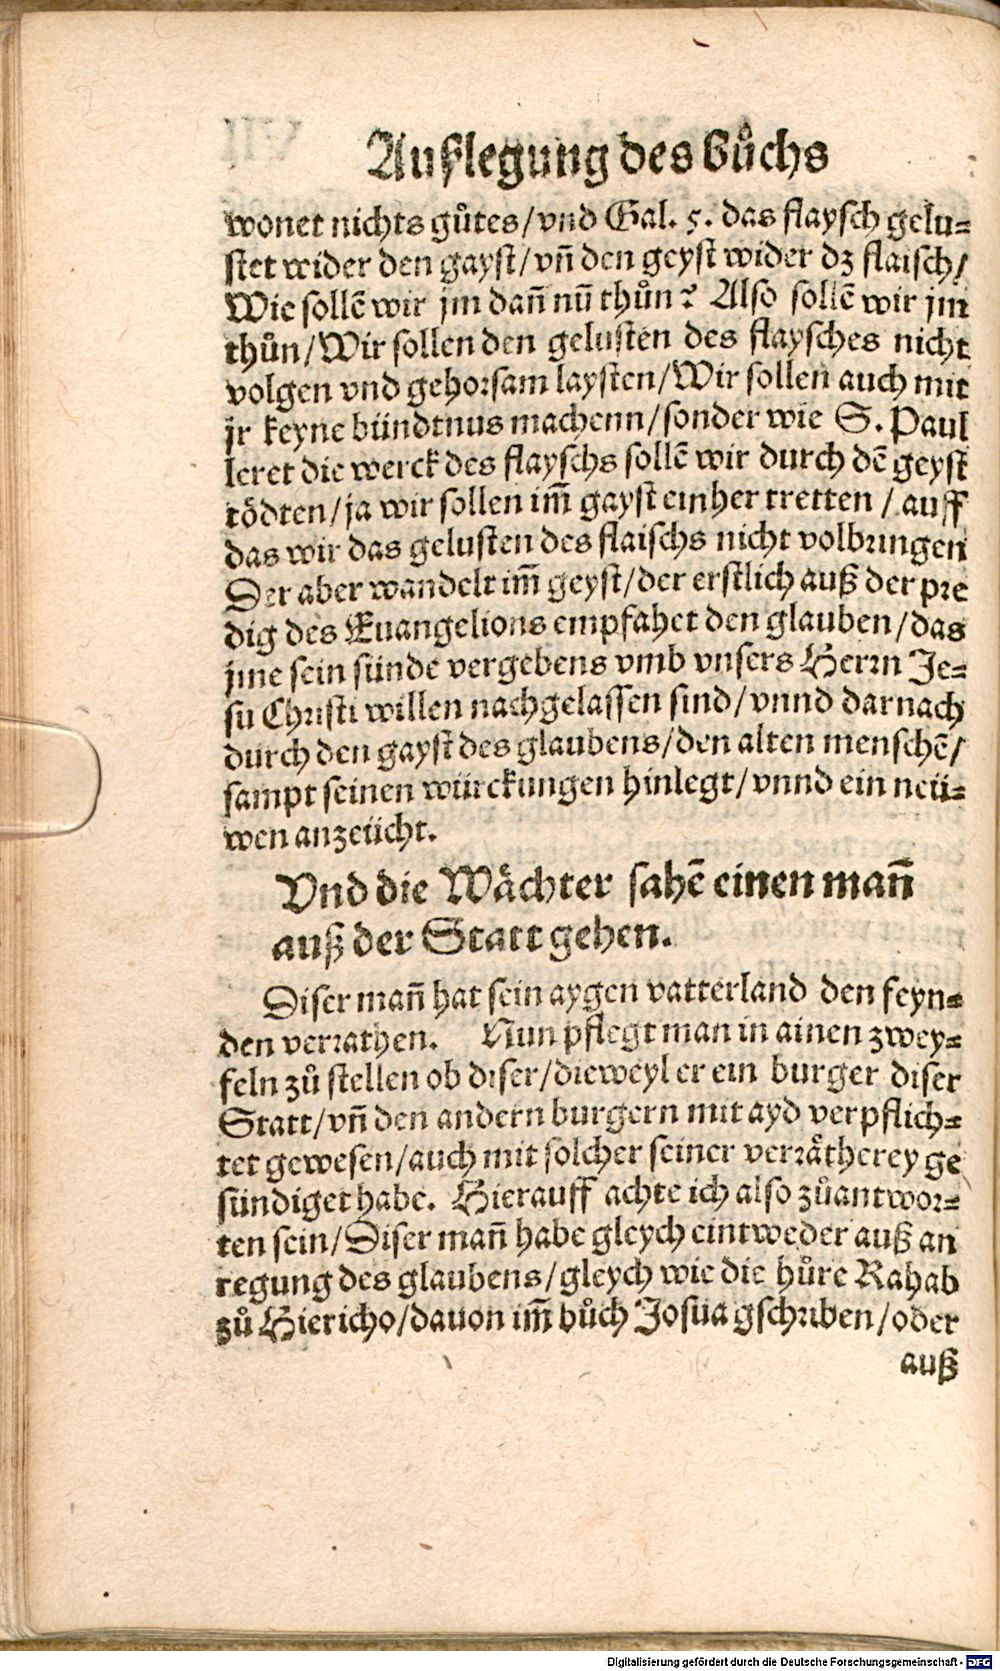 Außlegung des Bůchs
wonet nichts gůtes/vnd Gal. 5. das flaysch gelu-
stet wider den gayst/vñ den geyst wider dz flaisch/
Wie sollē wir jm dañ nũ thůn? Also sollē wir jm
thůn/Wir sollen den gelusten des flaysches nicht
volgen vnd gehorsam laysten/Wir sollen auch mit
jr keyne bündtnus machenn/sonder wie S. Paul
leret die werck des flayschs sollē wir durch dē geyst
tödten/ja wir sollen im̃ gayst einher tretten/auff
das wir das gelusten des flaischs nicht volbringen
Der aber wandelt im̃ geyst/der erstlich auß der pre
dig des Euangelions empfahet den glauben/das
jme sein sünde vergebens vmb vnsers Herrn Je-
su Christi willen nachgelassen sind/vnnd darnach
durch den gayst des glaubens/den alten menschē/
sampt seinen würckungen hinlegt/vnnd ein neü-
wen anzeücht.
Vnd die Wächter sahē einen mañ
auß der Statt gehen.
Diser mañ hat sein aygen vatterland den feyn-
den verrathen. Nun pflegt man in ainen zwey-
feln zů stellen ob diser/dieweyl er ein burger diser
Statt/vñ den andern burgern mit ayd verpflich-
tet gewesen/auch mit solcher seiner verrätherey ge
sündiget habe. Hierauff achte ich also zůantwor-
ten sein/Diser mañ habe gleych eintweder auß an
regung des glaubens/gleych wie die hůre Rahab
zů Hiericho/dauon im̃ bůch Josüa gschriben/oder
auß
Digitalisierung gefördert durch die Deutsche Forschungsgemeinschaft - DFG